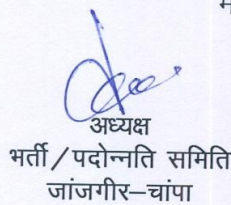 अध्यक्ष
भर्ती/पदोन्नति समिति
जांजगीर–चांपा